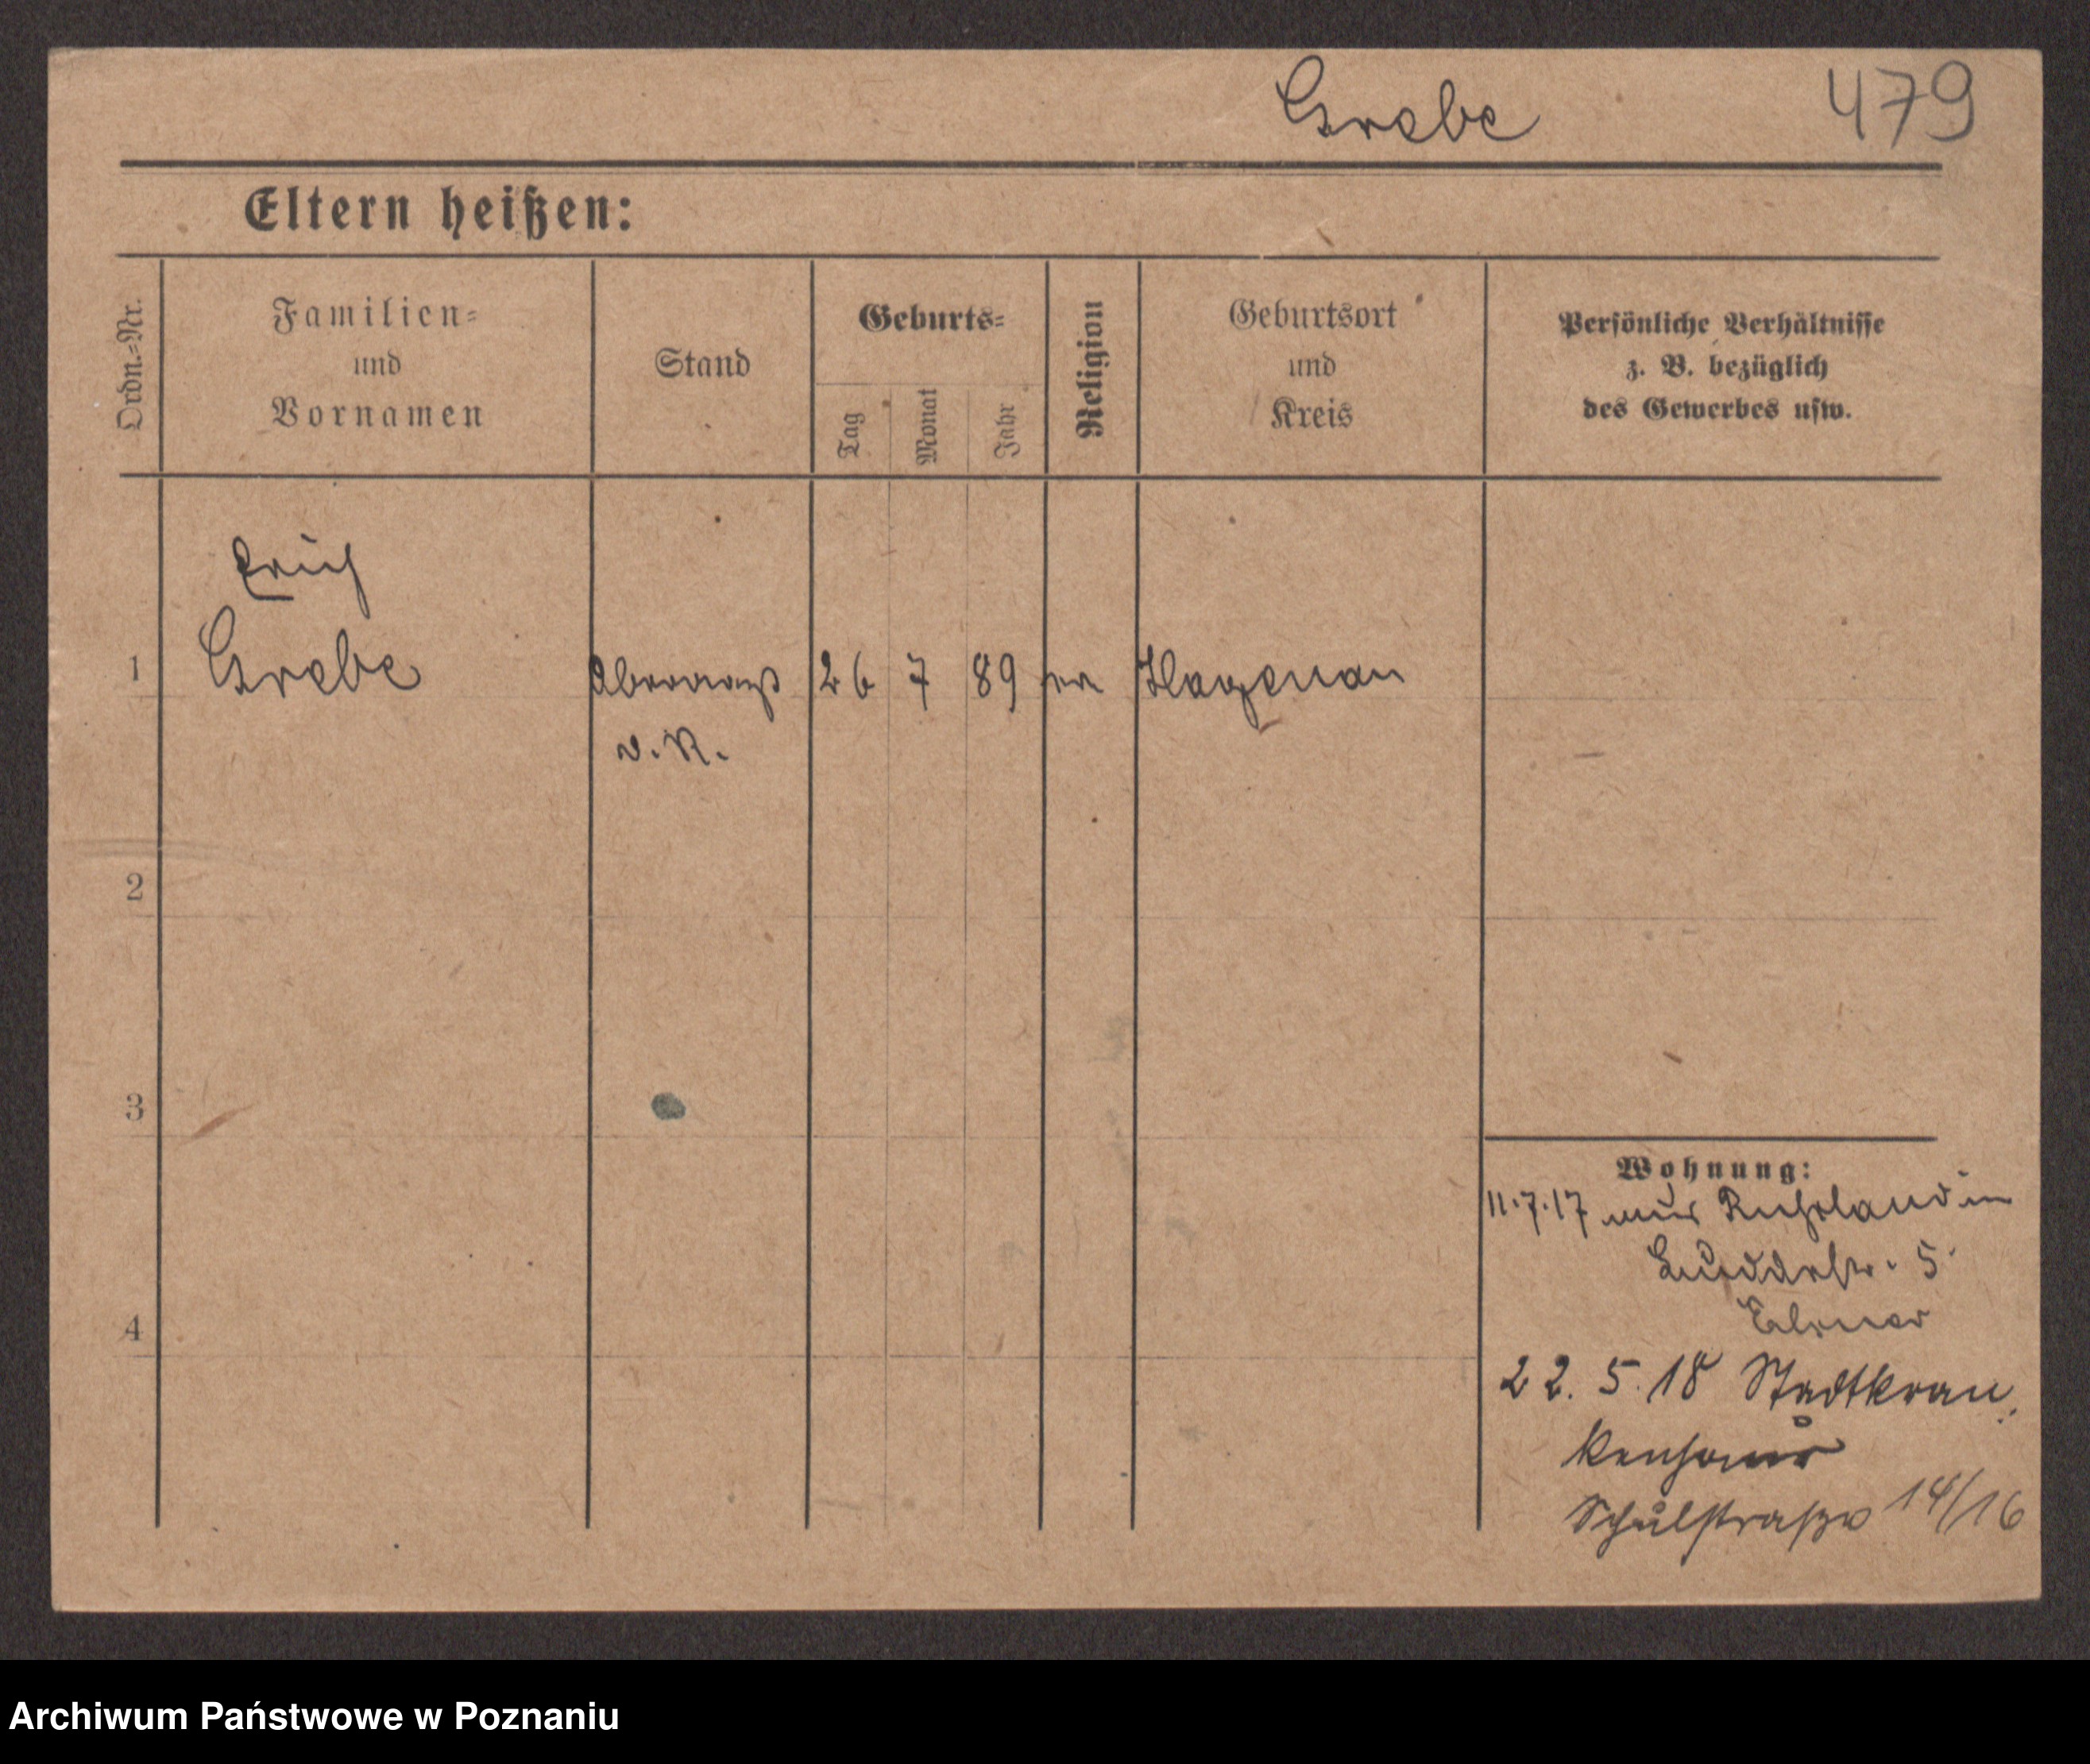 Grebe 479
Eltern heißen:
Ordn.=Nr.
Familien=
und
Vornamen
Stand
Geburts=
Tag
Monat
Jahr
Religion
Geburtsort
und
Kreis
Persönliche Verhältnisse
z. B. bezüglich
des Gewerbes usw.
Erich
1 Grebe Oberarzt 26 7 89 ev Hagenau
d. R.
2
3
4
Wohnung:
11.7.17 aus Rußland in
5
22. 5. 18 Stadtkran
kenhaus
Schulstraße 14/16
Archiwum Państwowe w Poznaniu